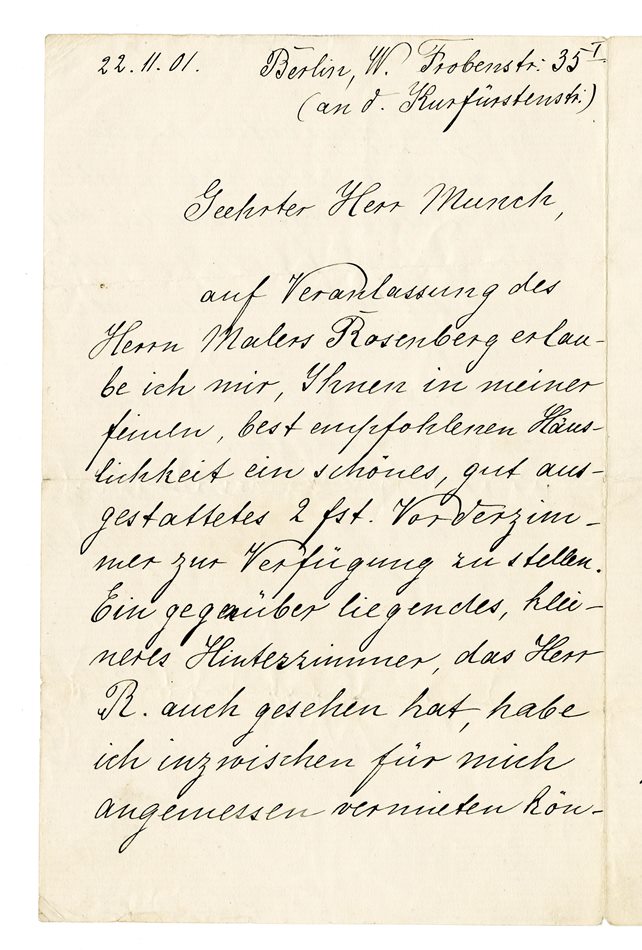 22.11.01. Berlin, W. Frobenstr: 35 I
(an d. Kurfürstenstr.)
Geehrter Herr Munch,
auf Veranlassung des
Herrn Malers Rosenberg erlau-
be ich mir, Ihnen in meiner
feinen, best empfohlenen Häus-
lichkeit ein schönes, gut aus-
gestattetes 2 fst. Vorderzim-
mer zur Verfügung zu stellen.
Ein gegenüber liegendes, klei-
neres Hinterzimmer, das Herr
R. auch gesehen hat, habe
ich inzwischen für mich
angemessen vermieten kön-